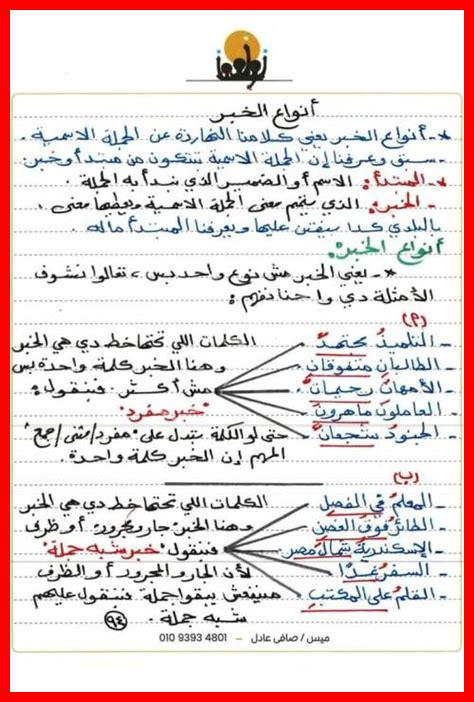 أنواع الخبر
*- أنواع الخبر يعني كلامنا النهاردة عن الجملة الاسمية.
- سبق وعرفنا إن الجملة الاسمية تتكون من مبتدأ وخبر:
*- المبتدأ: الاسم أو الضمير الذي نبدأ به الجملة.
- الخبر: الذي يتمم معنى الجملة الاسمية ويعطيها معنى،
بالبلدي كدا بيفتن عليها ويعرفنا المبتدأ ماله.
أنواع الخبر:
*- يعني الخبر مش نوع واحد بس، تعالوا نشوف
الأمثلة دي واحنا نفهم:
(أ)
- التلميذ مجتهد
- الطالبان متفوقان
- الأمهات رحيمات
- العاملون ماهرون
- الجنود شجعان
الكلمات اللي تحتها خط دي هي الخبر
وهنا الخبر كلمة واحدة بس
مش أكتر. فبنقول:
"خبر مفرد"
حتى لو الكلمة بتدل على مفرد/مثنى/جمع
المهم إن الخبر كلمة واحدة.
(ب)
- المعلم في الفصل
- الطائر فوق الغصن
- الإسكندرية شمال مصر
- السفر غدًا
- القلم على المكتب
الكلمات اللي تحتها خط دي هي الخبر
وهنا الخبر جار ومجرور أو ظرف
فبنقول "خبر شبه جملة"
لأن الجار والمجرور أو الظرف
مبينفعش يبقوا جملة فبنقول عليهم
شبه جملة.
٩٤
ميس / صافى عادل - 010 9393 4801